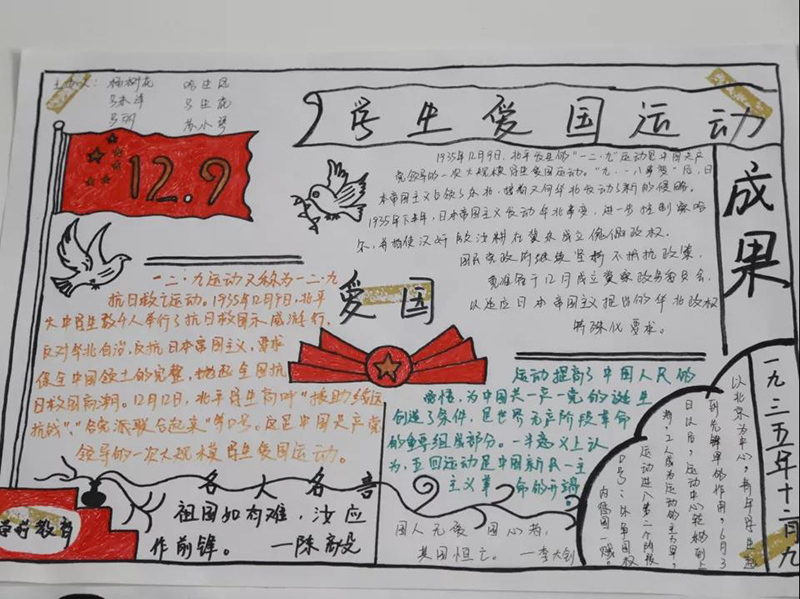 学生爱国运动
成果
12.9
1935年12月9日,北平发生的"一二·九"运动是中国共产
党领导的一次大规模学生爱国运动。"九·一八事变"后,日
本帝国主义占领了东北,
1935年下半年,日本帝国主义发动华北事变,进一步控制察哈
尔,并指使汉奸殷汝耕在冀东成立傀儡政权。
国民党政府继续坚持不抵抗政策,
竟准备于12月成立冀察政务委员会,
以适应日本帝国主义提出的华北政权
特殊化要求。
一二·九运动又称为一二·九
抗日救亡运动。1935年12月9日,北平
大中学生数千人举行了抗日救国示威游行,
反对华北自治,反抗日本帝国主义,要求
保全中国领土的完整,掀起全国抗
日救国高潮。12月12日,北平学生高呼"援助绥远
抗战","各党派联合起来"等口号。这是中国共产党
领导的一次大规模学生爱国运动。
爱国
运动提高了中国人民的
觉悟,为中国共产党的诞生
创造了条件,是世界无产阶级革命
的重要组成部分。
为,五四运动是中国新民主
主义革命的开端。
一九三五年十二月九
以北京为中心,青年学生起
到先锋军的作用。6月3
日以后,运动中心转移到上
海,工人成为运动的主力军,
运动进入第二个阶段
口号:外争国权
内惩国贼。
各大名言
祖国如有难,汝应
作前锋。 —陈毅
国人无爱国心者,
其国恒亡。 —李大钊